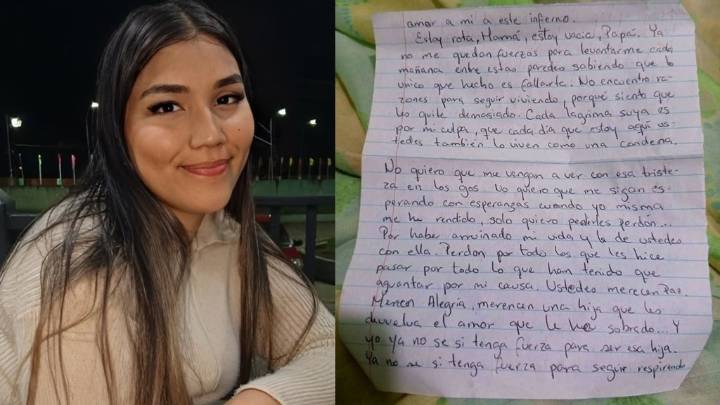 amor a mi a este infierno.
Estoy rota, Mamá, estoy vacia, Papá. Ya
no me quedan fuerzas para levantarme cada
mañana entre estas paredes sabiendo que lo
unico que hecho es fallarte. No encuentro ra-
zones para seguir viviendo, porque siento que
les quite demasiado. Cada lagrima suya es
por mi culpa, que cada día que estoy aquí us-
tedes tambien lo viven como una condena.
No quiero que me vengan a ver con esa triste-
za en los ojos no quiero que me sigan es-
perando con esperanzas cuando yo misma
me he rendido, solo quiero pedirles perdón...
Por haber arruinado mi vida y la de ustedes
con ella. Perdon por todo los que les hice
pasar por todo lo que han tenido que
aguantar por mi causa. Ustedes merecen Paz.
Merecen Alegría, merencen una hija que les
devuelva el amor que le he sobrado... Y
yo ya no se si tenga fuerza para ser esa hija.
Ya no se si tenga fuerza para seguir respirando